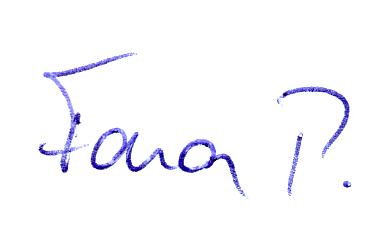 Fara P.